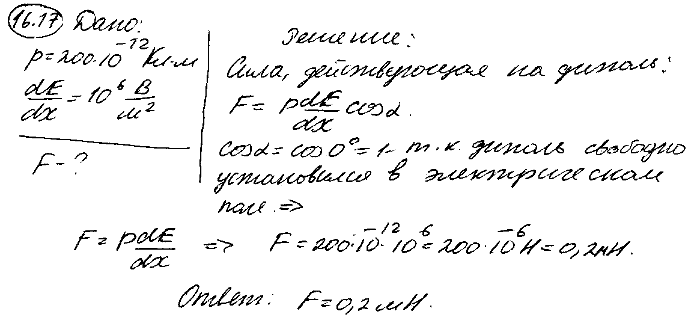 16.17 Дано:
p = 200·10⁻¹² Кл·м
dE/dx = 10⁶ В/м²
F - ?
Решение:
Сила, действующая на диполь:
F = p dE/dx cosα.
cosα = cos0° = 1 - т.к. диполь свободно
установился в электрическом
поле. =>
F = p dE/dx => F = 200·10⁻¹²·10⁶ = 200·10⁻⁶ Н = 0,2 мН.
Ответ: F = 0,2 мН.